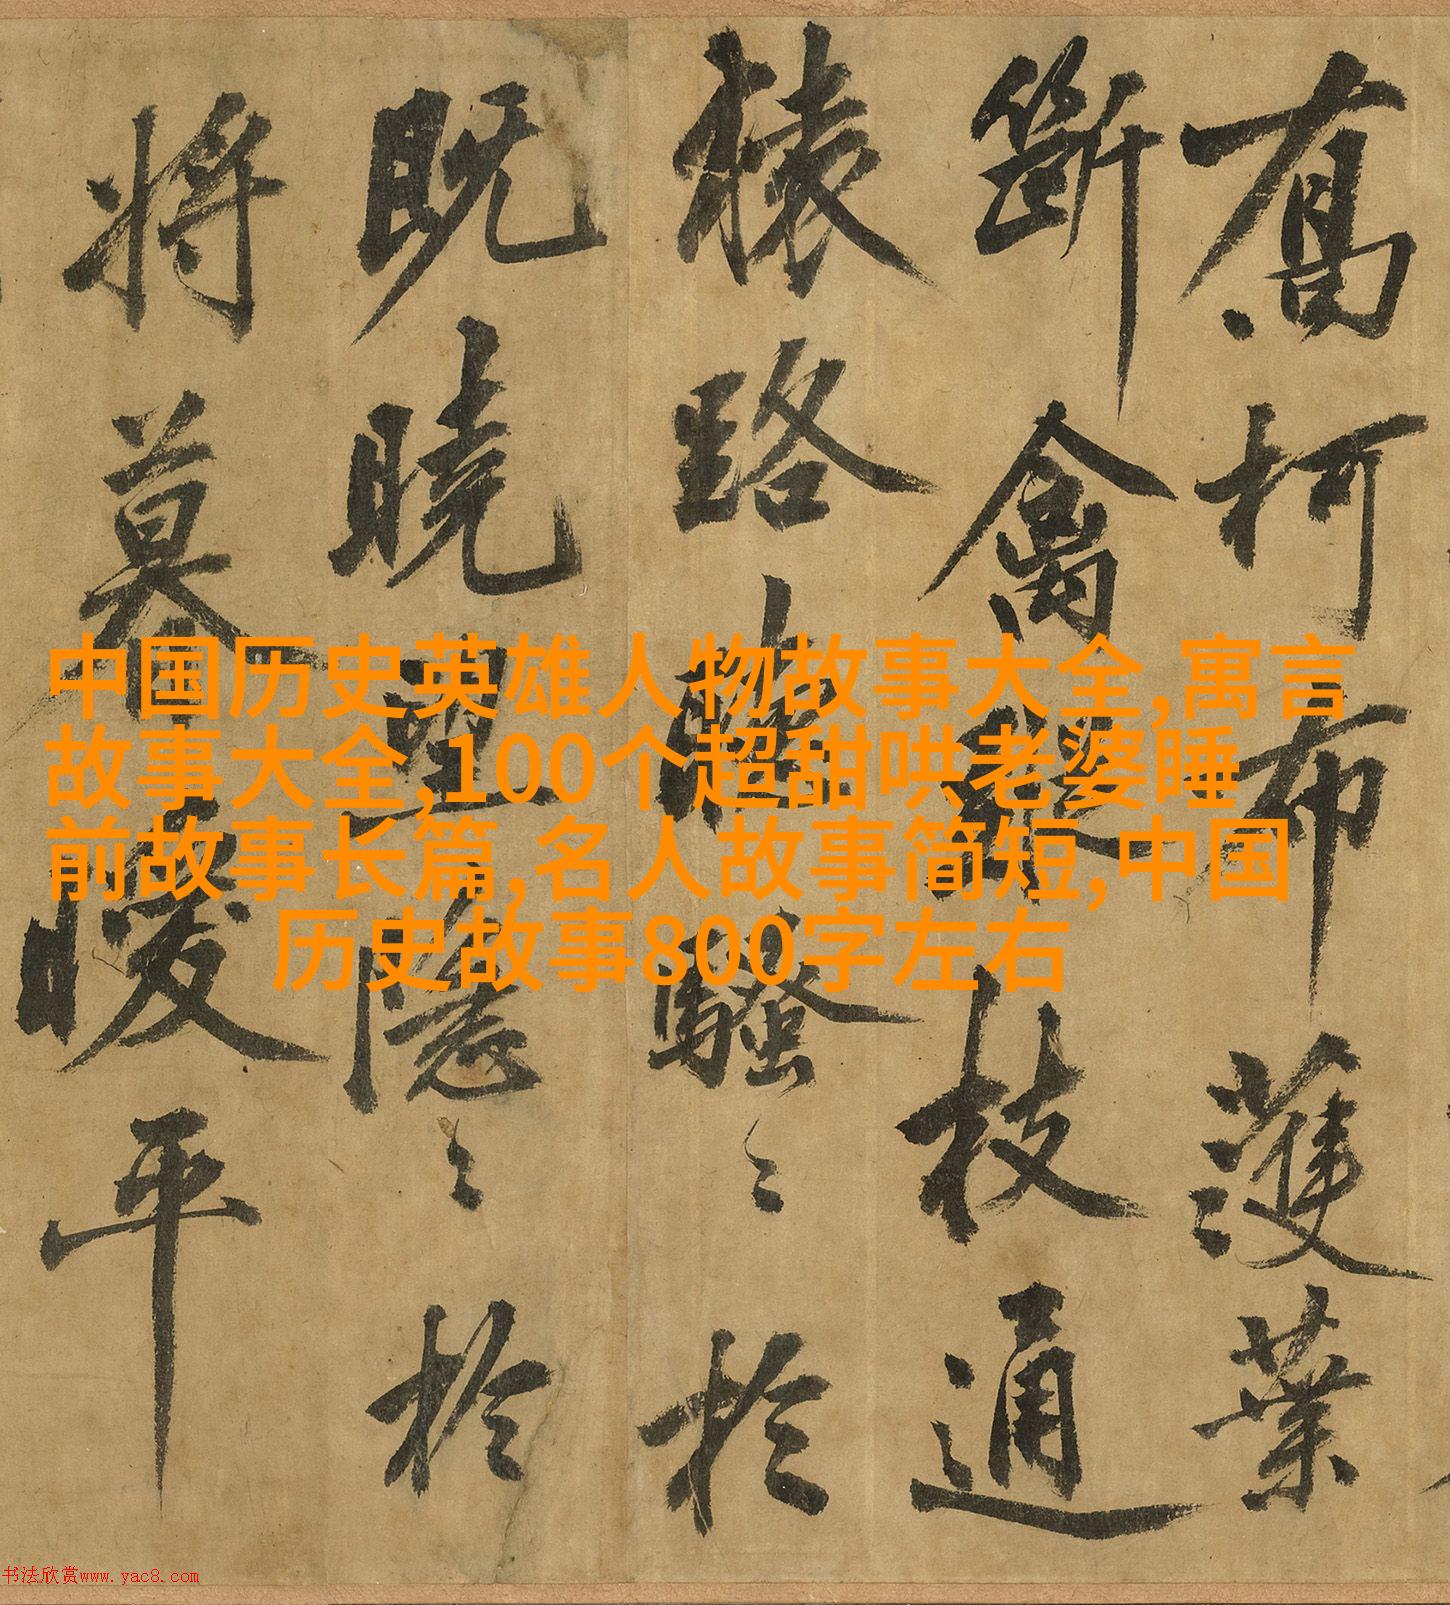 喬柯布濩葉
斷禽枝通
猿路騷〻於
既曉望隱〻於
將暮暖平
中国历史英雄人物故事大全,寓言
故事大全,100个超甜哄老婆睡
前故事长篇,名人故事简短,中国
历史故事800字左右
书法欣赏www.yac8.com